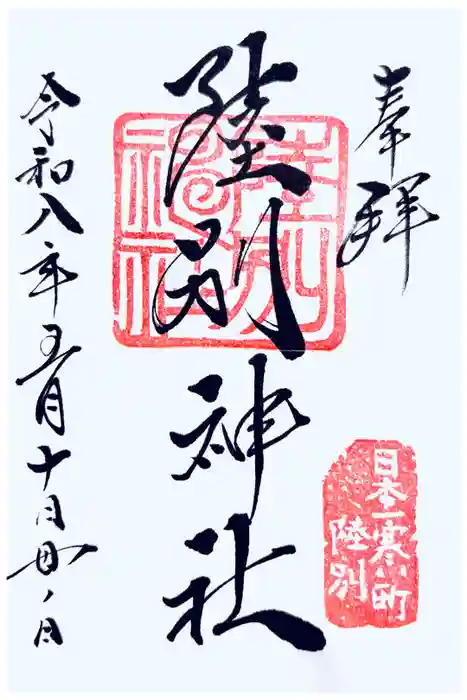 奉拝
陸別神社
陸別神社
日本一寒い町
陸別
令和八年五月十日母ノ日